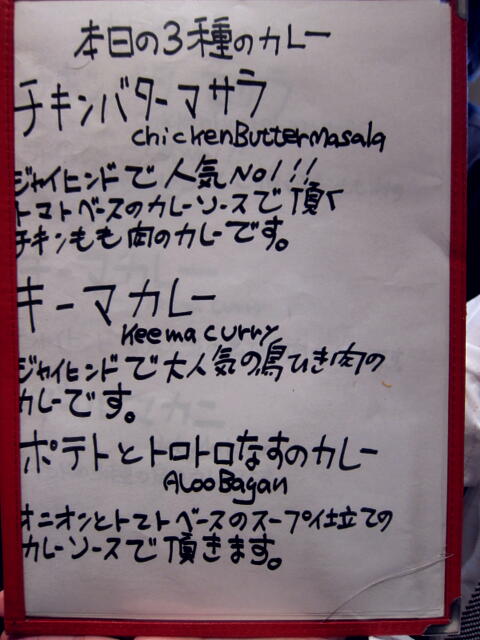 本日の3種のカレー
チキンバターマサラ
chickenButtermasala
ジャイヒンドで人気No1!!
トマトベースのカレーソースで頂く
チキンもも肉のカレーです。
キーマカレー
Keema curry
ジャイヒンドで大人気の鳥ひき肉の
カレーです。
ポテトとトロトロなすのカレー
Aloo Bagan
オニオンとトマトベースのスープ仕立ての
カレーソースで頂きます。